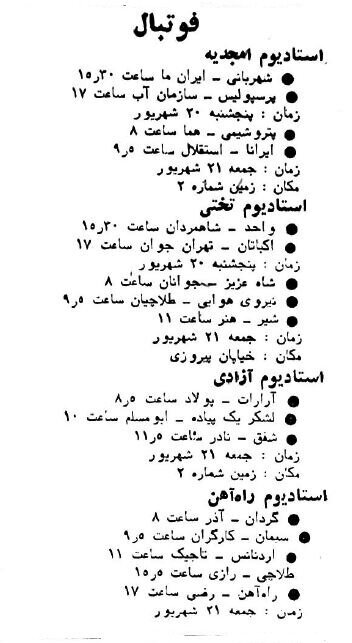 فوتبال
استادیوم امجدیه
● شهربانی ـ ایران ما ساعت ۱۵٫۳۰
● پرسپولیس ـ سازمان آب ساعت ۱۷
زمان : پنجشنبه ۲۰ شهریور
● پتروشیمی ـ هما ساعت ۸
● ایرانا ـ استقلال ساعت ۹٫۵
زمان : جمعه ۲۱ شهریور
مکان : زمین شماره ۲
استادیوم تختی
● واحد ـ شاهمردان ساعت ۱۵٫۳۰
● اکباتان ـ تهران جوان ساعت ۱۷
زمان : پنجشنبه ۲۰ شهریور
● شاه عزیز ـ جوانان ساعت ۸
● نیروی هوایی ـ طلاچیان ساعت ۹٫۵
● شیر ـ هنر ساعت ۱۱
زمان : جمعه ۲۱ شهریور
مکان : خیابان پیروزی
استادیوم آزادی
● آرارات ـ پولاد ساعت ۸٫۵
● لشکر یک پیاده ـ ابومسلم ساعت ۱۰
● شفق ـ نادر ساعت ۱۱٫۵
زمان : جمعه ۲۱ شهریور
مکان : زمین شماره ۲
استادیوم راه‌آهن
● گردان ـ آذر ساعت ۸
● سیمان ـ کارگران ساعت ۹٫۵
● اردنانس ـ تاجیک ساعت ۱۱
طلاچی ـ رازی ساعت ۱۵٫۵
● راه‌آهن ـ رضی ساعت ۱۷
زمان : جمعه ۲۱ شهریور